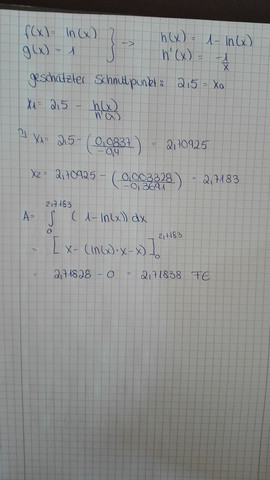 f(x) = ln(x) } --> h(x) = 1 - ln(x)
g(x) - 1 h'(x) = -1/x
geschätzter Schnittpunkt: 2,5 = x0
x1 = 2,5 - h(x)/h'(x)
=> x1 = 2,5 - (0,0837/-0,4) = 2,70925
x2 = 2,70925 - (0,003328/-0,3691) = 2,7183
A = ∫ 0 2,7183 (1 - ln(x)) dx
= [x - (ln(x)·x - x)] 0 2,7183
= 2,71828 - 0 = 2,71838 FE